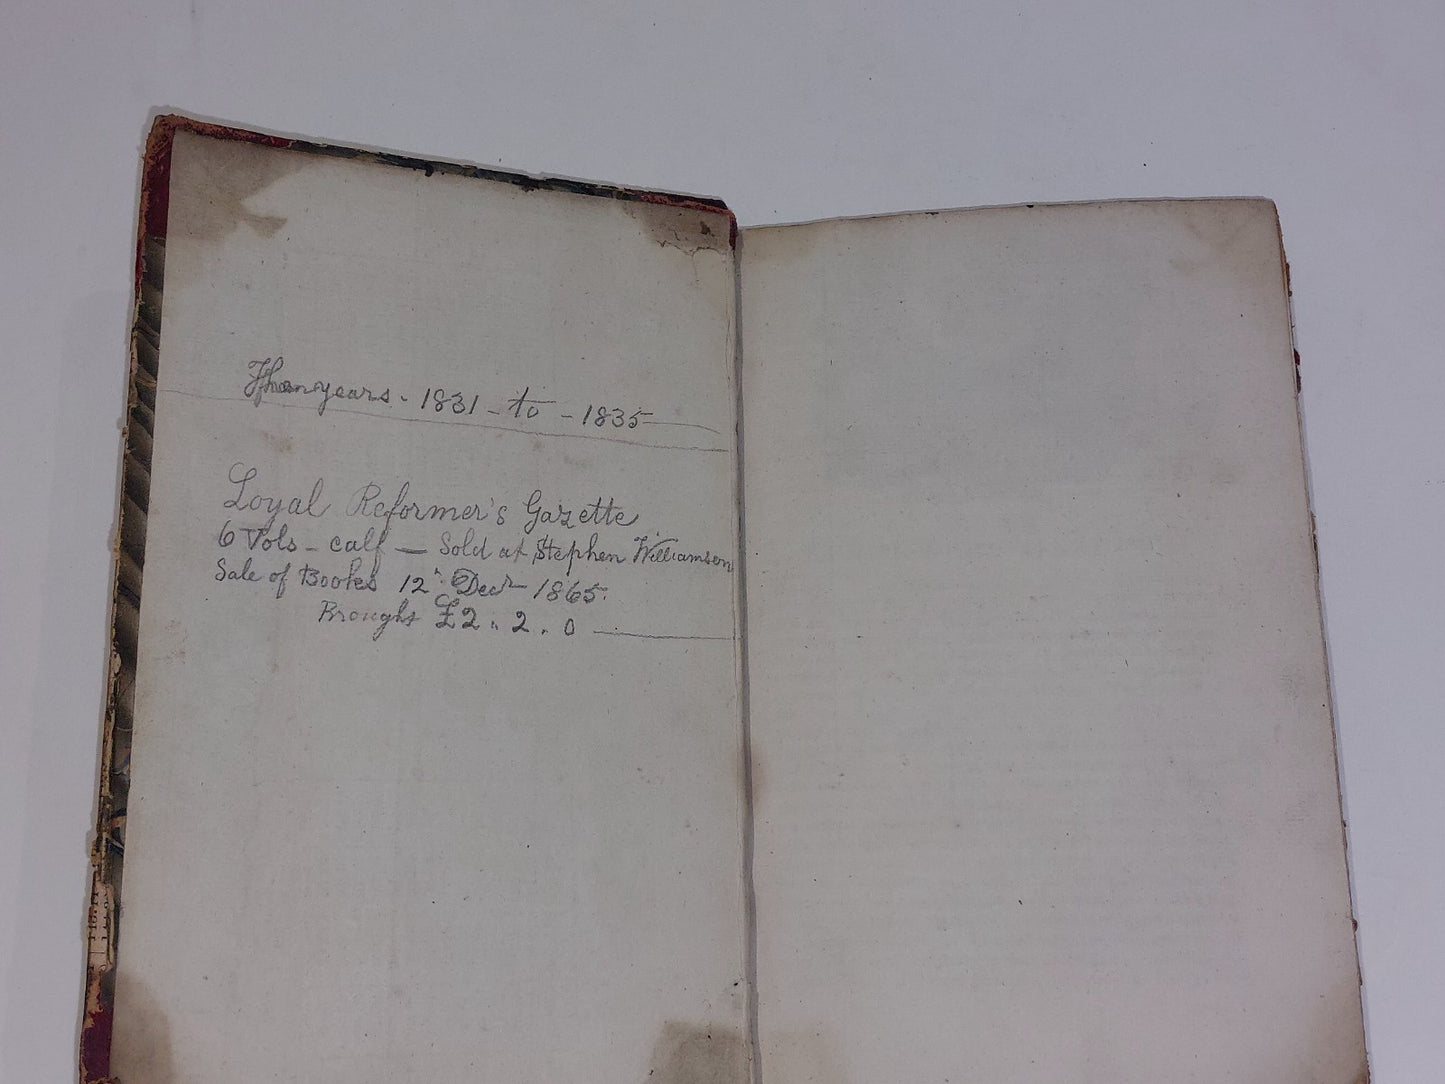 years - 1831 - to - 1835
Loyal Reformer's Gazette
6 Vols - calf — Sold at Stephen Williamson
Sale of Books 12" Decr 1865.
Brought £2 " 2 . 0